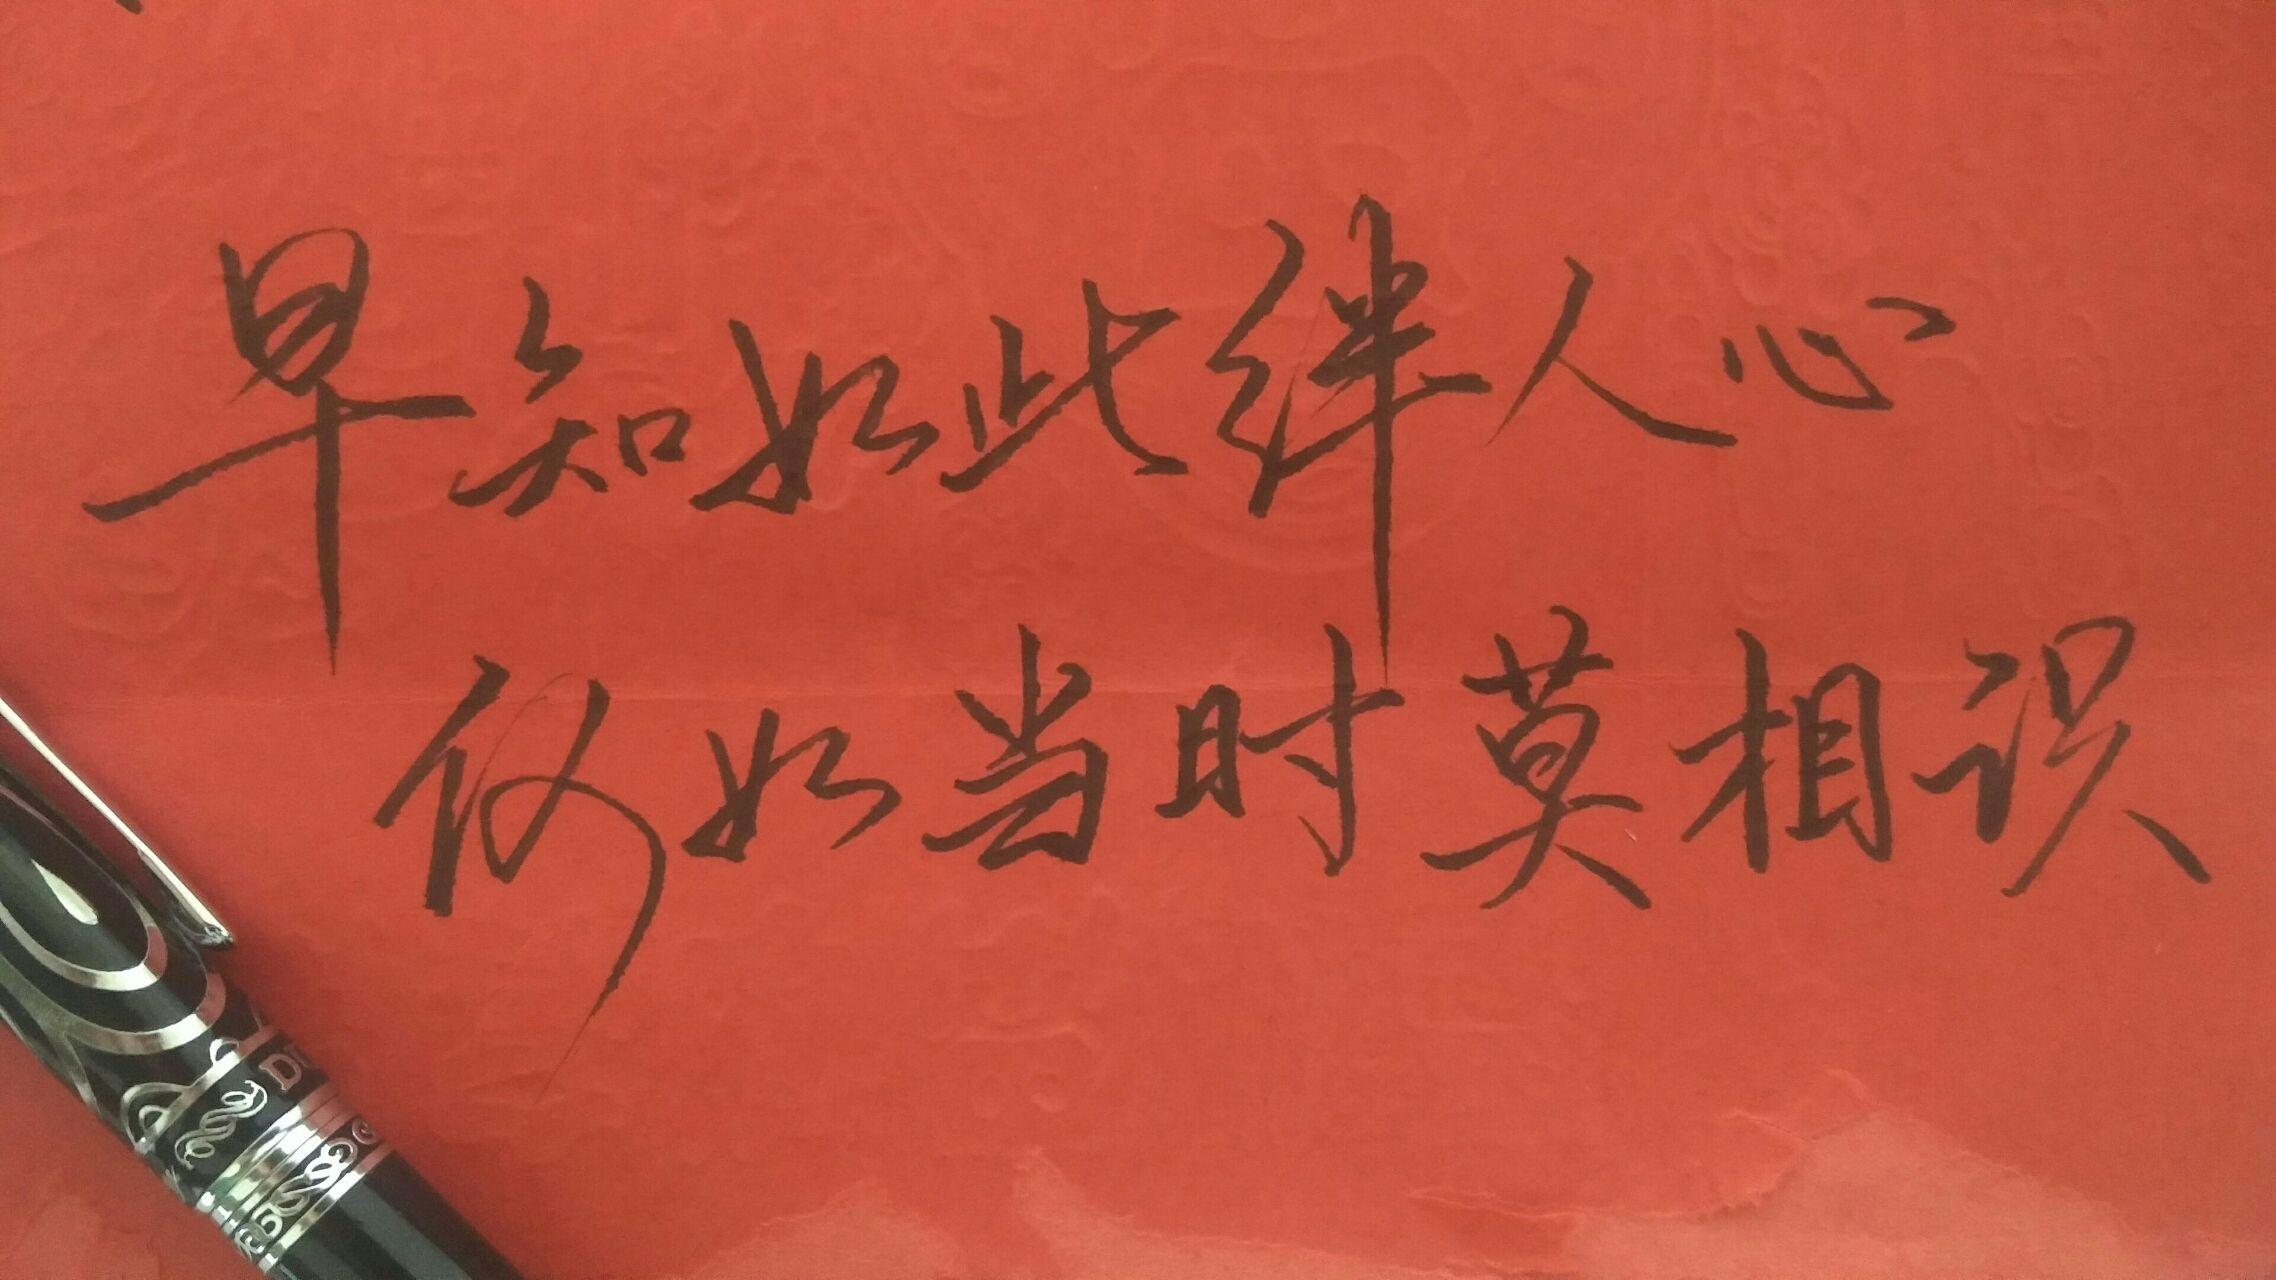 早知如此绊人心
仪如当时莫相识